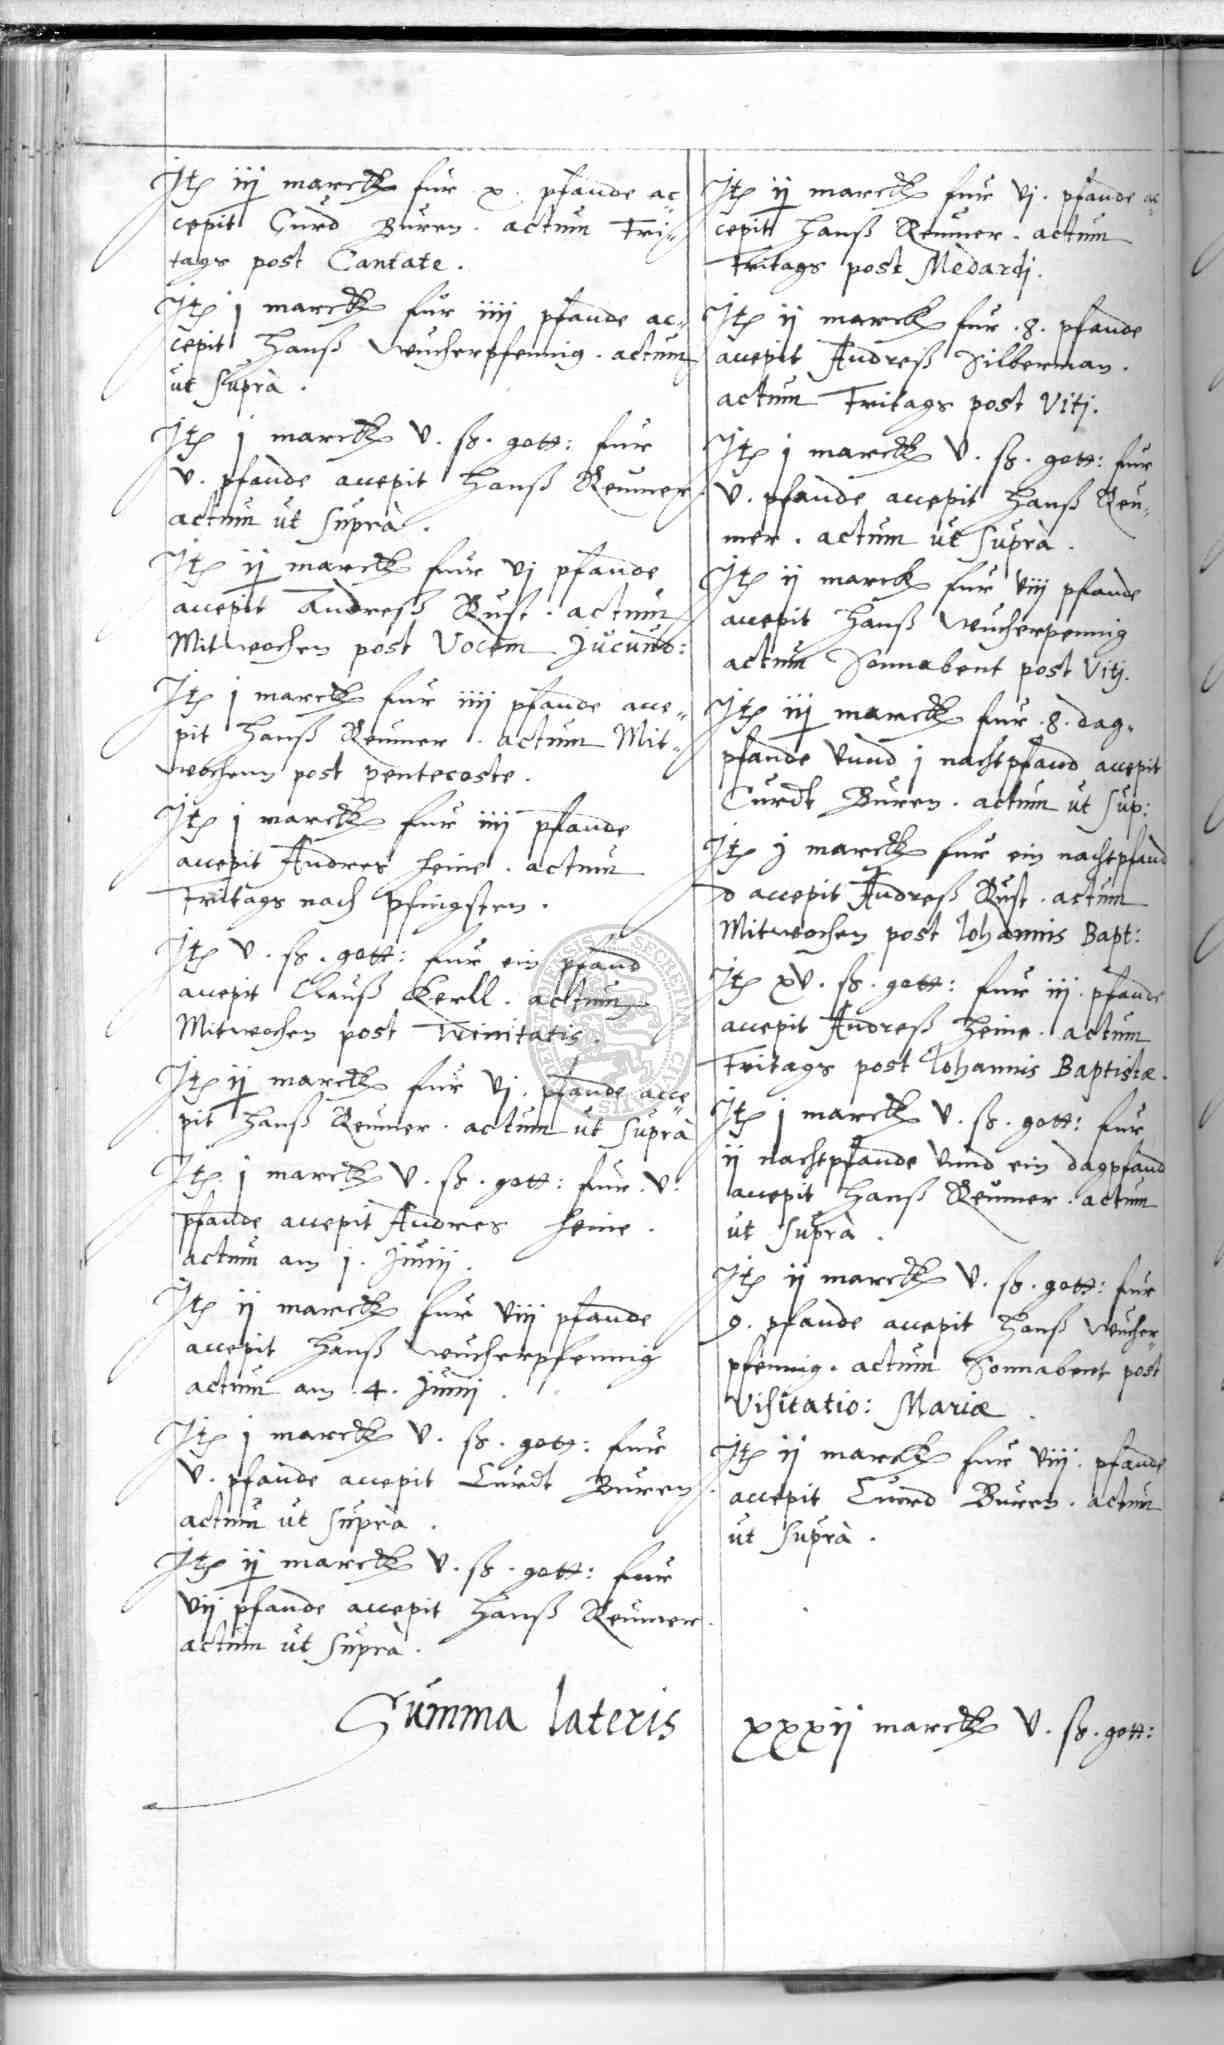 Jtem iij marck fur x. pfande ac=
cepit Curd Buren. actum Fri=
tags post Cantate.
Jtem j marck fur iiij pfande ac=
cepit Hanß Wucherpfennig. actum
ut Suprà.
Jtem j marck v. ß. gott: fur
v. pfande accepit Hanß Reumer
actum ut Suprà.
Jtem ij marck fur vj pfande
accepit Andreß Rust. actum
Mitwochen post Vocem Jucund:
Jtem j marck fur iiij pfande acce=
pit Hanß Reumer. actum Mit=
wochenn post pentecoste.
Jtem j marck fur iiij pfande
accepit Andres Heine. actum
Fritags nach Pfingsten.
Jtem v. ß. gott: fur ein pfand
accepit Clauß Kerll. actum
Mitwochen post Trinitatis.
Jtem ij marck fur vj. pfande acce=
pit Hanß Reumer. actum ut Suprà
Jtem j marck v. ß. gott: fur. v.
pfande accepit Andres Heine.
actum am j. Junij.
Jtem ij marck fur viij pfande
accepit Hanß Wucherpfennig
actum am .4. Junij.
Jtem j marck v. ß. gott: fur
v. pfande accepit Curdt Buren.
actum ut Suprà.
Jtem ij marck v. ß. gott: fur
vij pfande accepit Hanß Reumer.
actum ut Suprà.
Jtem ij marck fur vj. pfande ac=
cepit Hanß Reumer. actum
Fritags post Medardj.
Jtem ij marck fur .8. pfande
accepit Andreß Silberman.
actum Fritags post Vitj.
Jtem j marck v. ß. gott: fur
v. pfande accepit Hanß Reu=
mer. actum ut Suprà.
Jtem ij marck fur viij pfande
accepit Hanß Wucherpennig
actum Sonnabent post Vitj.
Jtem iij marck fur .8. dag=
pfande vnnd j nachtpfand accepit
Curdt Buren. actum ut Sup:
Jtem j marck fur ein nachtpfand
accepit Andreß Rust. actum
Mitwochen post Iohannis Bapt:
Jtem xv. ß. gott: fur iij. pfande
accepit Andreß Heine. actum
Fritags post Iohannis Baptistæ.
Jtem j marck v. ß. gott: fur
ij nachtpfande vnnd ein dagpfand
accepit Hanß Reumer. actum
ut Suprà.
Jtem ij marck v. ß. gott: fur
9. pfande accepit Hanß Wucher=
pfennig. actum Sonnabent post
Visitatio: Mariæ.
Jtem ij marck fur viij. pfande
accepit Curd Buren. actum
ut Suprà.
Summa lateris xxxij marck v. ß. gott: